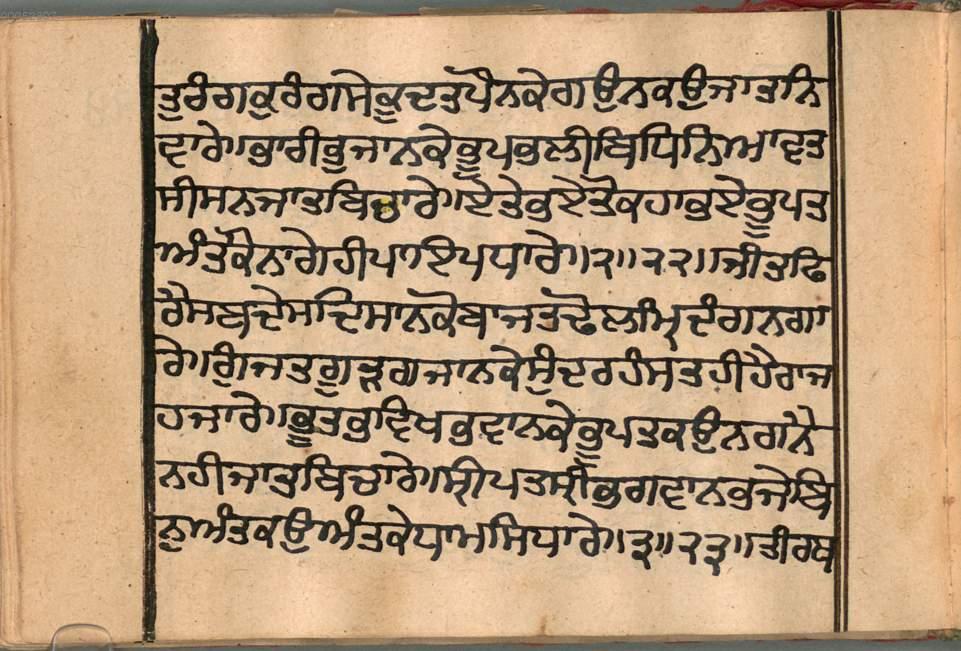 ਤੁਰੰਗਕੁਰੰਗਸੇਕੂਦਤਪੌਨਕੇਗਉਨਕਉਜਾਤਨਿ
ਵਾਰੇ॥ਭਾਰੀਭੁਜਾਨਕੇਭੂਪਭਲੀਬਿਧਿਨਿਆਵਤ
ਸੀਸਨਜਾਤਬਿਚਾਰੇ॥ਏਤੇਭਏਤੌਕਹਾਭਏਭੂਪਤ
ਅੰਤਕੌਨਾਗੇਹੀਪਾਇਪਧਾਰੇ॥੨॥੨੨॥ਜੀਤਫਿ
ਰੈਸਬਦੇਸਦਿਸਾਨਕੋਬਾਜਤਢੋਲਮ੍ਰਿਦੰਗਨਗਾ
ਰੇ॥ਗੁੰਜਤਗੂੜਗਜਾਨਕੇਸੁੰਦਰਹੰਸਤਹੀਹੈਰਾਜ
ਹਜਾਰੇ॥ਭੂਤਭਵਿਖਭਵਾਨਕੇਭੂਪਤਕਉਨਗਨੈ
ਨਹੀਜਾਤਬਿਚਾਰੇ॥ਸ੍ਰੀਪਤਸ੍ਰੀਭਗਵਾਨਭਜੇਬਿ
ਨੁਅੰਤਕਉਅੰਤਕੇਧਾਮਸਿਧਾਰੇ॥੩॥੨੩॥ਤੀਰਥ